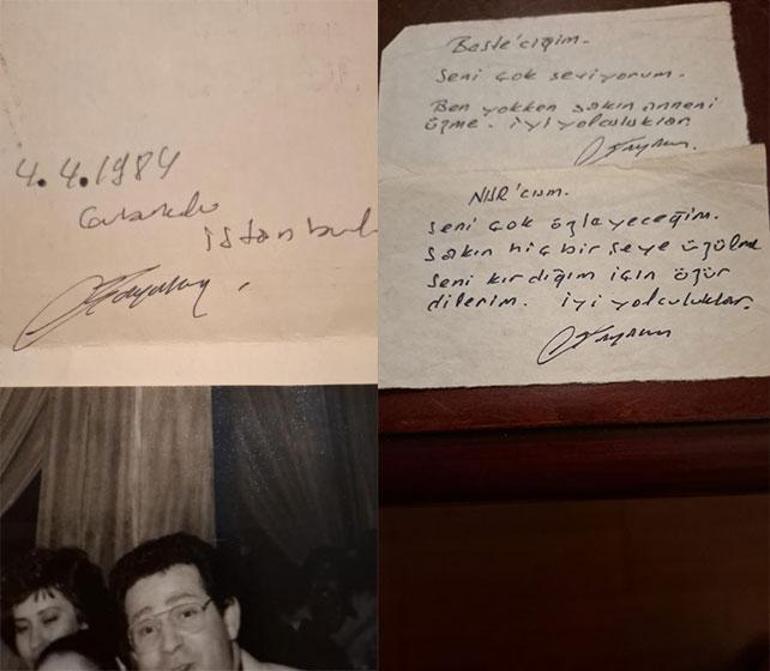 4.4.1984
istanbul
Beste'ciğim.
Seni çok seviyorum.
Ben yokken sakın anneni
üzme. iyi yolculuklar.
NUR'cum.
Seni çok özleyeceğim.
Sakın hiç bir şeye üzülme
Seni kırdığım için özür
dilerim. iyi yolculuklar.